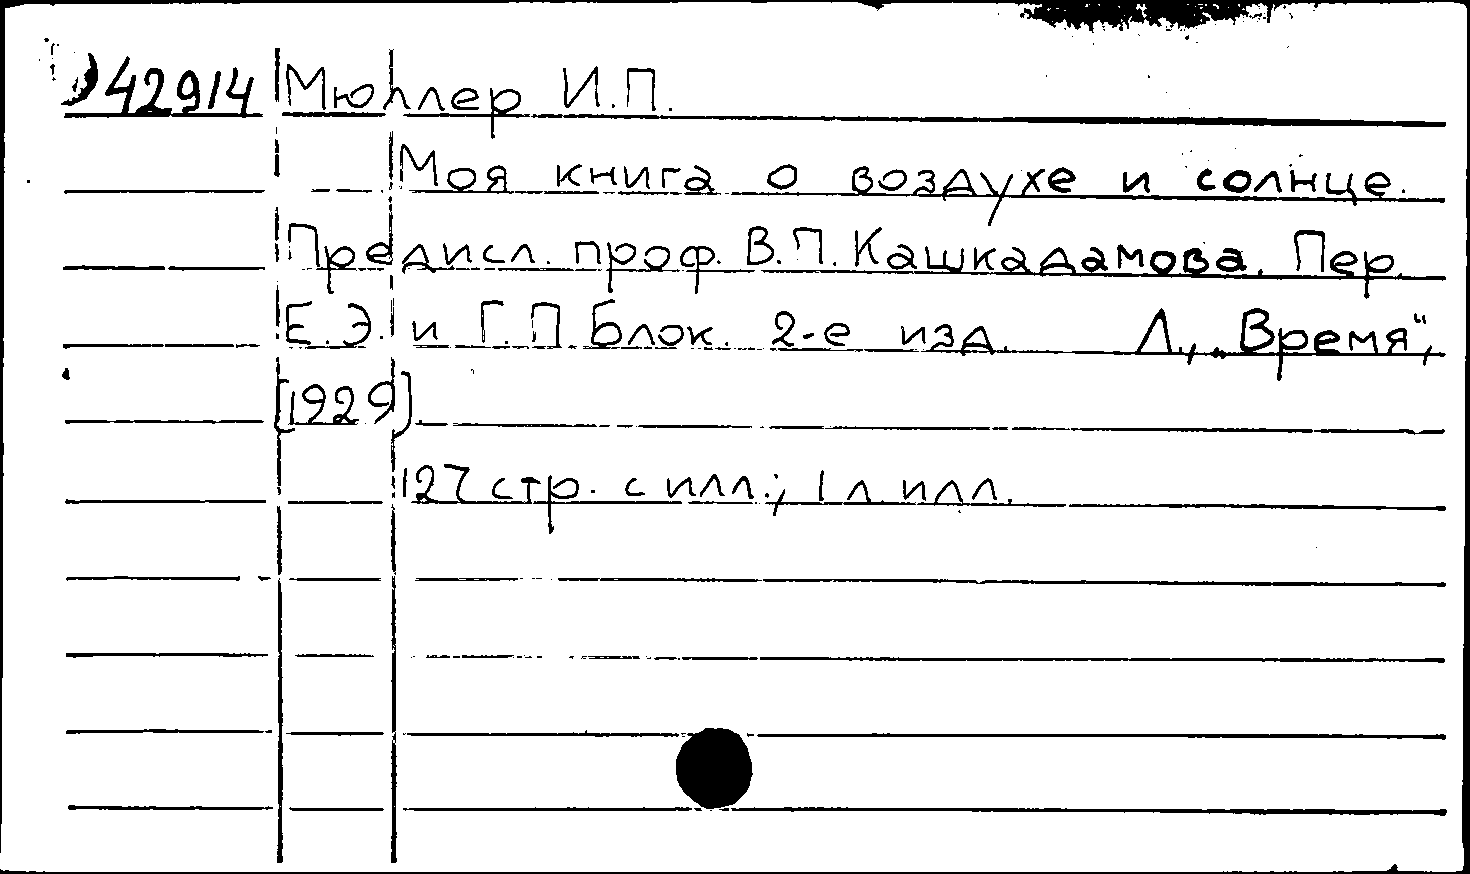 42914 Мюллер И.П.
Моя книга о воздухе и солнце.
Предисл. проф. В.П. Кашкадамова. Пер.
Е.Э. и Г.П. Блок. 2-е изд. Л., „Время“,
[1929].
127 стр. с илл.; 1 л. илл.